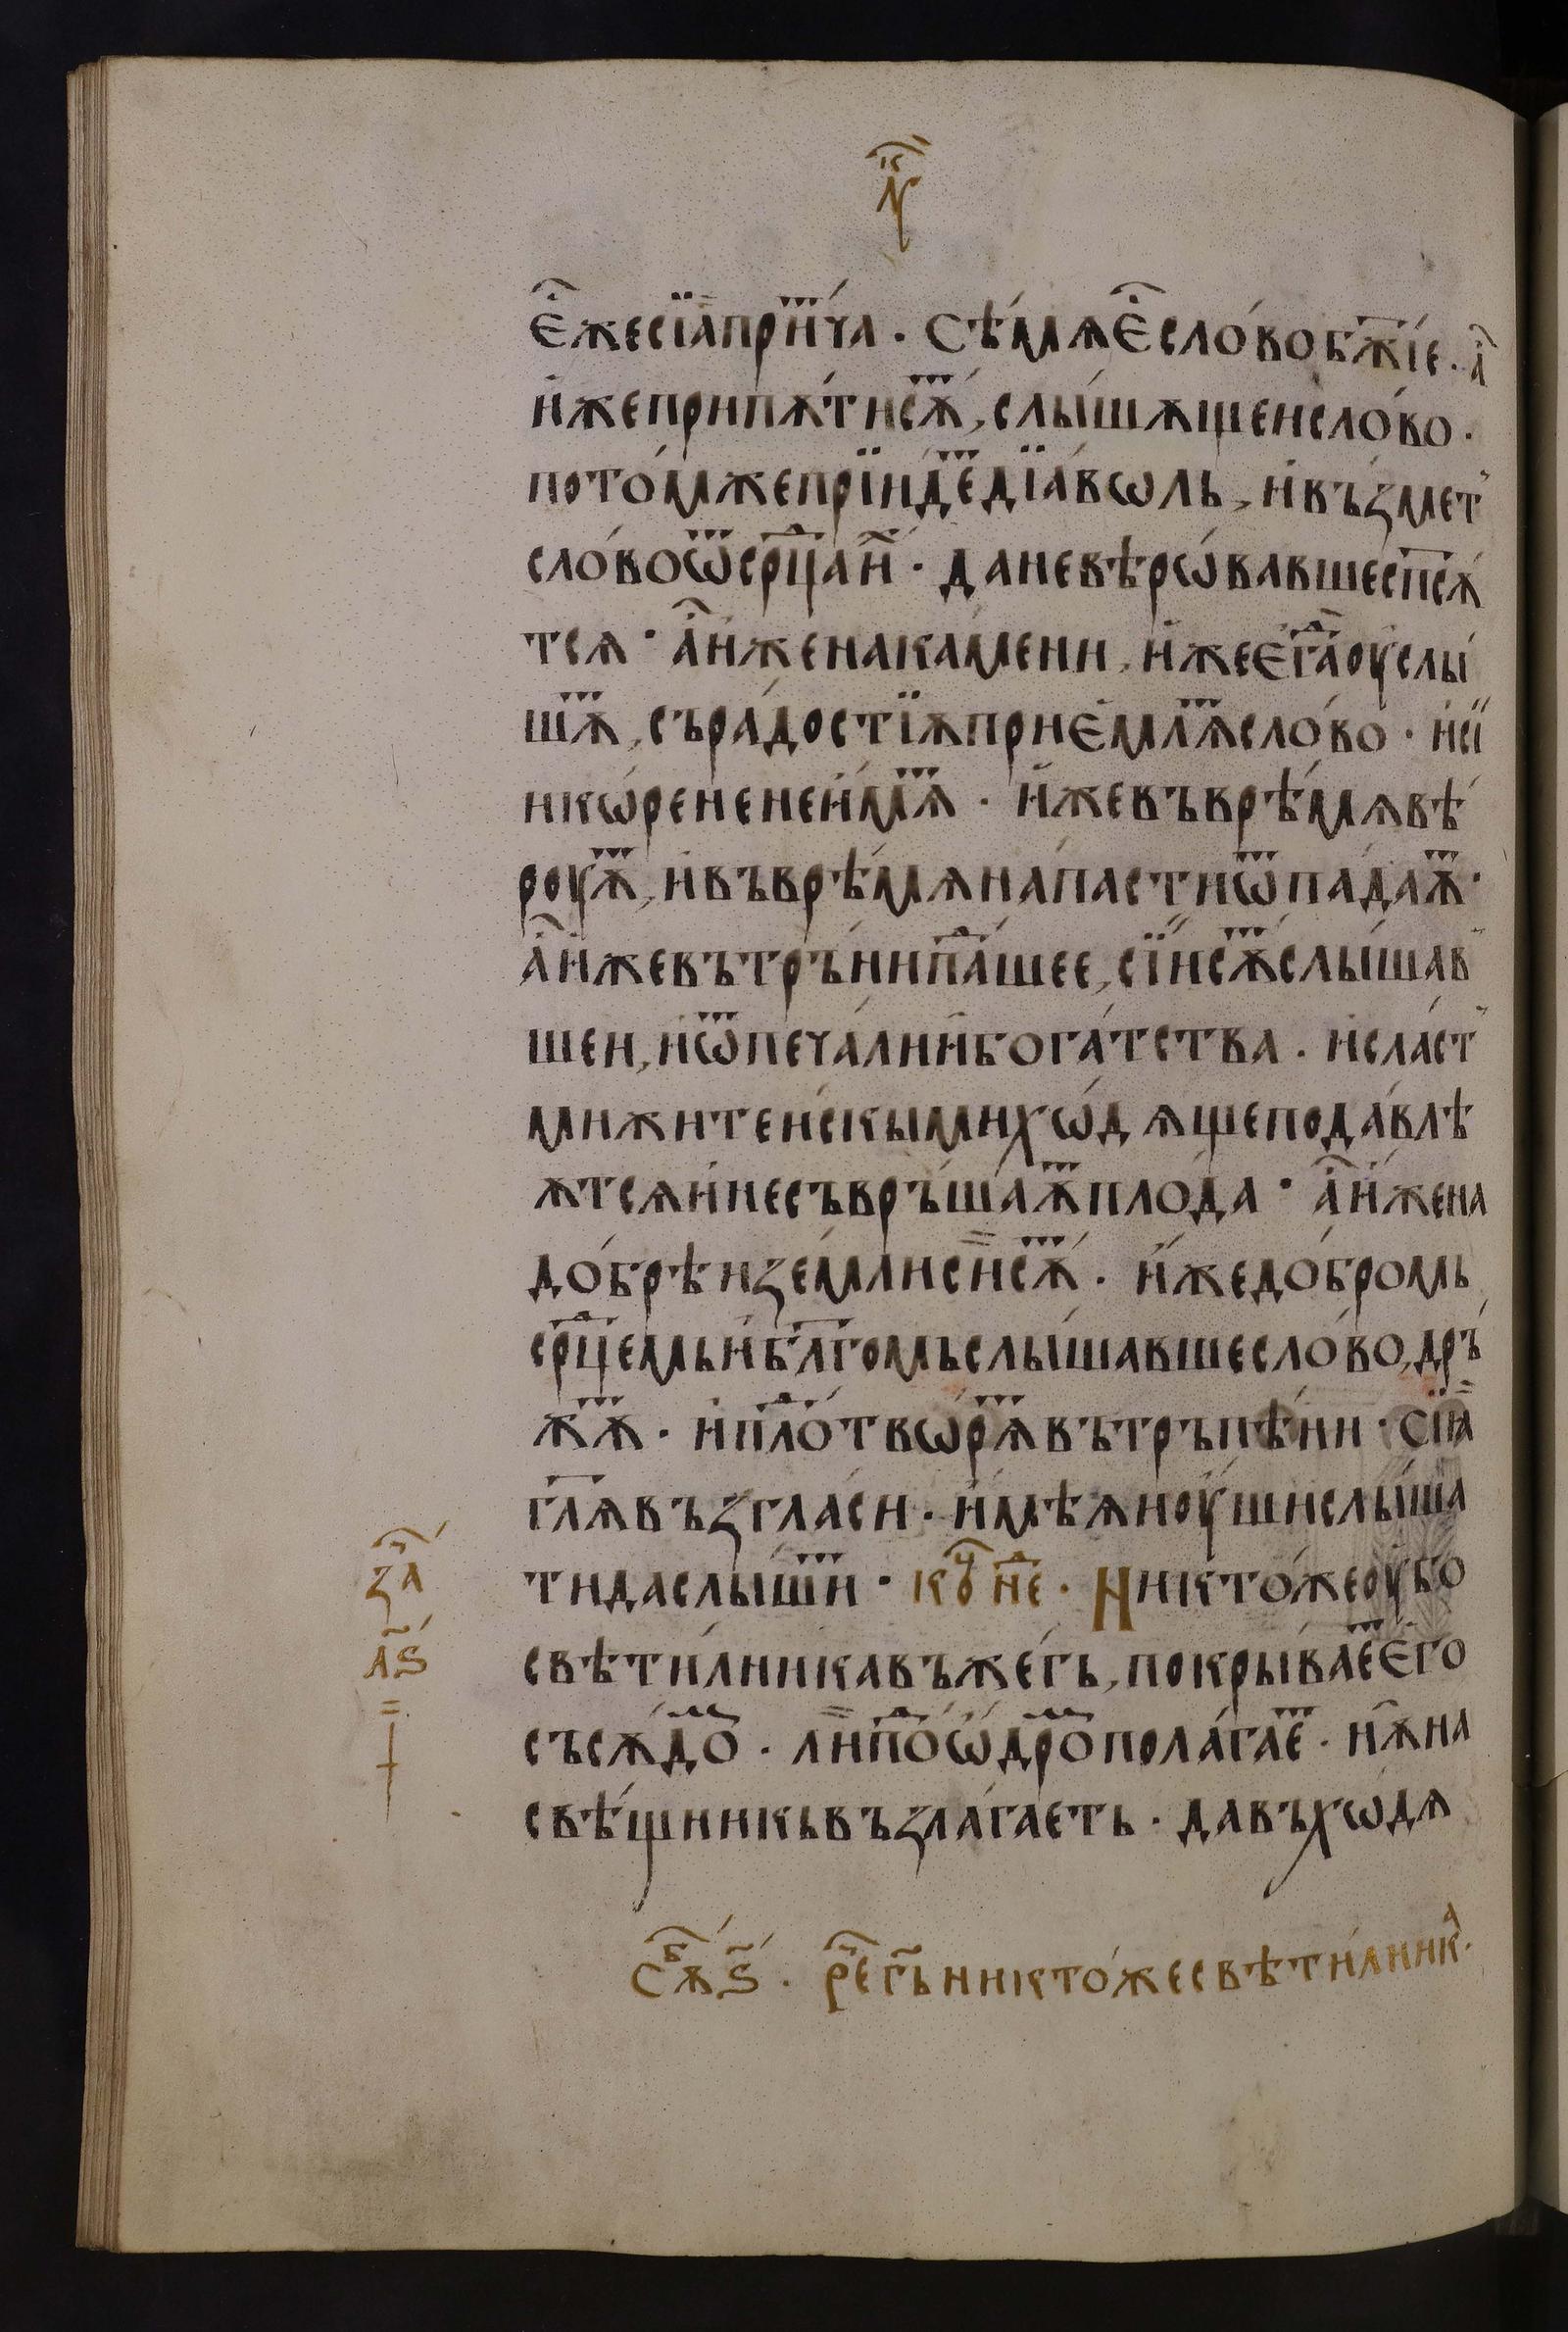 Є҆жесїаприⷮча · Сѣ́мѧЄ҆сло́вобж҃їе · а҆
и҆жеприпѫ́тисѫⷮ, слы́шѧщеислово ·
пото́мжепрїи́деⷮдїа́вѡль, и҆възмет
сло́воѿср҃цаи҆х · даневѣрѡ́вавшесп҃сѧ́
тсѧ · а҆и҆женакамени, и҆жеєгⷣаоуслы́
шѧⷮ, съра́достїѫприє҆млѧⷮсло́во · и҆сїи
никѡ́рененеи҆мѫⷮ · и҆жевъврѣ́мѧвѣ́
роуѫⷮ, и҆въврѣ́мѧна́пастиѿпа́даѫⷮ ·
а҆и҆жевътръ́нипⷣа́шее, сїи́сѫⷮслы́шав
шеи, и҆ѿпеча́лии҆бога́тства · и҆сла́ст
мижите́искымихѡ́дѧщеподавлѣ́
ѫтсѧи҆несъвръ́шаѫⷮплода́ · а҆и҆жена
до́брѣиземлисїисѫⷮ · и҆жедо́бромь
ср҃цемьи҆бл҃гомьслы́шавшесло́во, дръ́
жѫⷮ · и҆плⷣо́твѡрѧⷮвътръпѣ́ни · Сїа
гл҃ѧвъзгла́си · и҆мѣѧноу́шислы́ша
тидаслы́шиⷮ · коⷰ҇ неⷣ · Никто́жеоу́бо
свѣти́лникавъже́гъ, покрыва́еⷮє҆го
съсѫ́доⷨ · липоⷣѡ҆дро́ⷨполага́еⷮ · нѫ҆на
свѣ́щникьвъзлага́еть · давъхѡ́дѧ
за҇
лѕ
Сѫⷠ҇ ѕ҃ · рⷱ҇егь̑никто́жесвѣти́лникⷶ ·